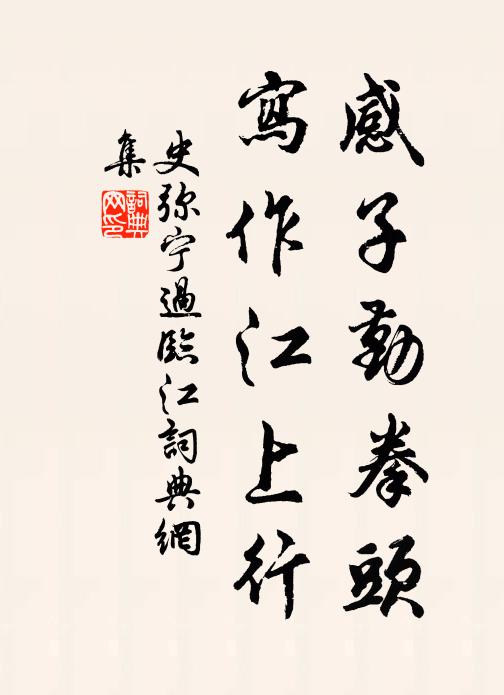 感子勤拳頭
寫作江上行
史弥宁過臨江詞典網
集
詞典
网印